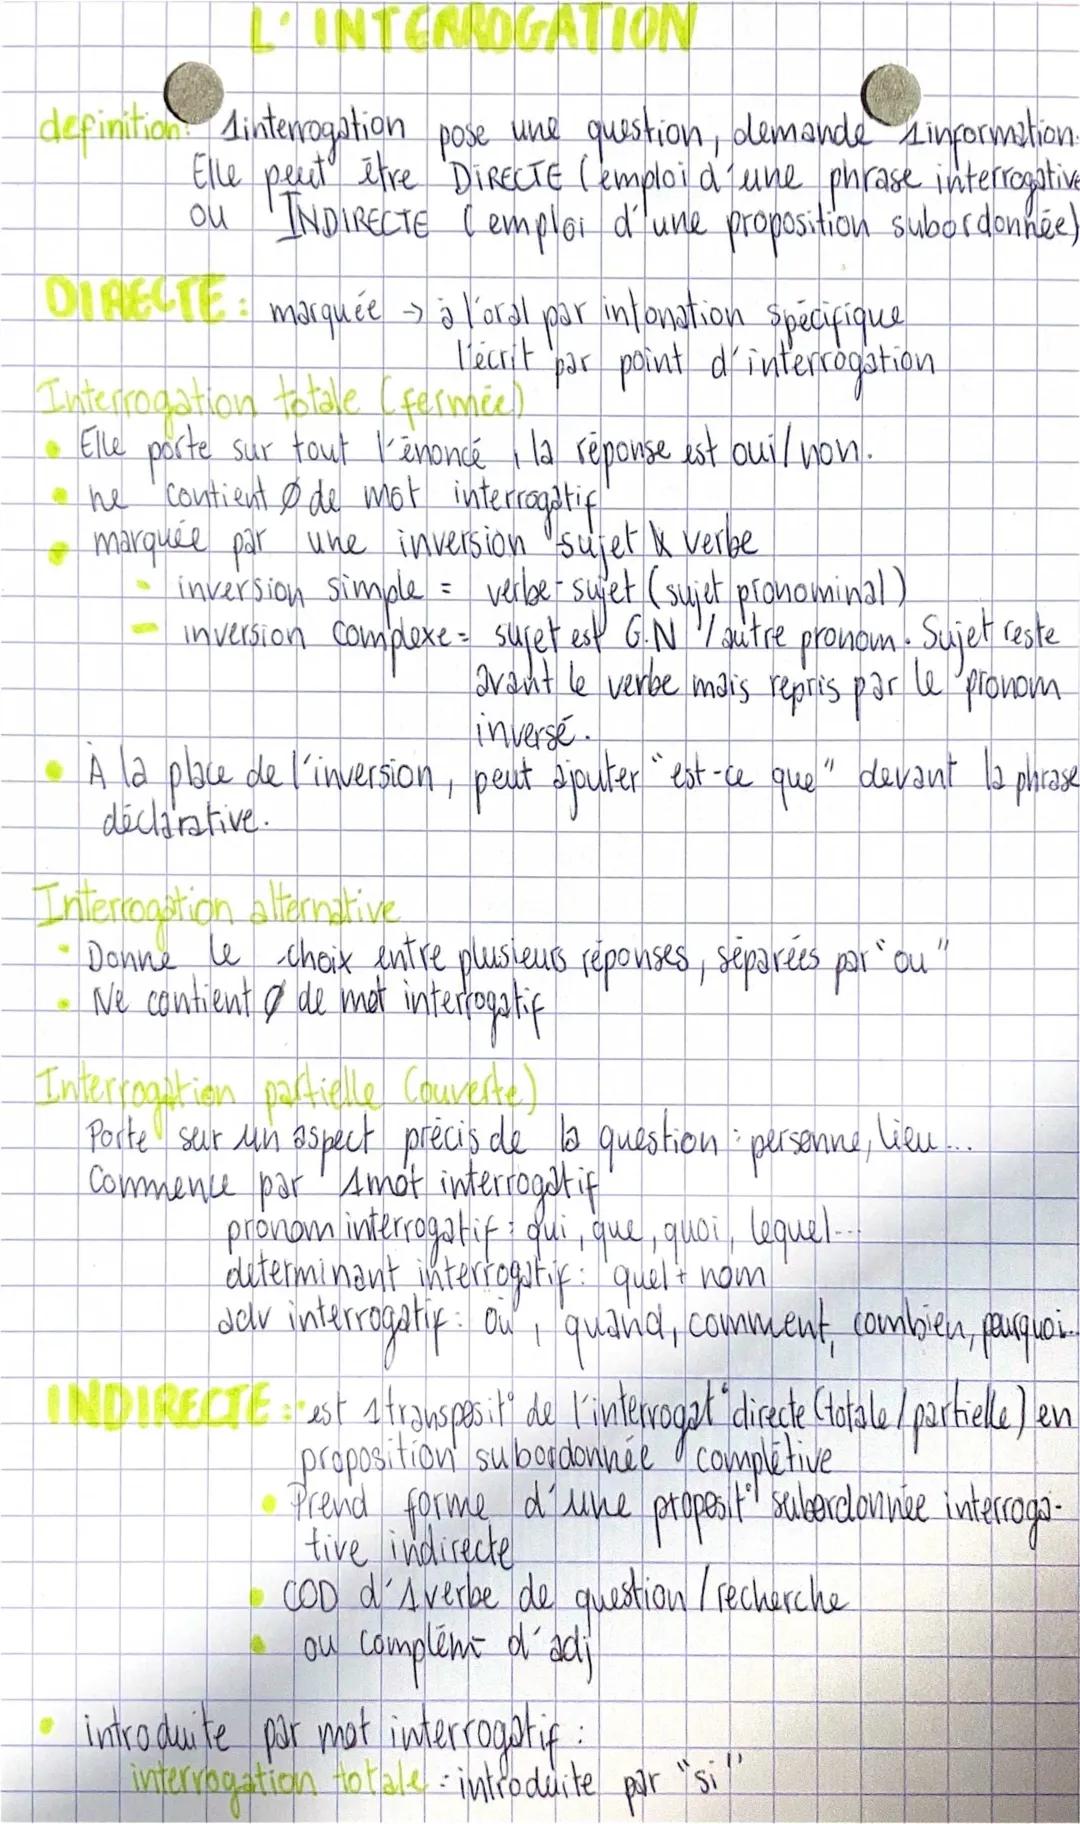 L'INTERROGATION
definition: 1interrogation pose une question, demande 1information.
Elle peut être DIRECTE (emploi d'une phrase interrogative
ou INDIRECTE (emploi d'une proposition subordonnée)
DIRECTE : marquée → à l'oral par intonation spécifique
l'écrit par point d'interrogation
Interrogation totale (fermée)
• Elle porte sur tout l'énoncé, la réponse est oui/non.
• ne contient Ø de mot interrogatif
• marquée par une inversion sujet & verbe
- inversion simple = verbe-sujet (sujet pronominal)
- inversion complexe = sujet est G.N / autre pronom. Sujet reste
avant le verbe mais repris par le pronom
inversé.
• À la place de l'inversion, peut ajouter "est-ce que" devant la phrase
déclarative.
Interrogation alternative
• Donne le choix entre plusieurs réponses, séparées par "ou"
• Ne contient Ø de mot interrogatif
Interrogation partielle (ouverte)
Porte sur un aspect précis de la question : personne, lieu...
Commence par 1mot interrogatif
pronom interrogatif : qui, que, quoi, lequel...
determinant interrogatif : quel + nom
adv interrogatif : où, quand, comment, combien, pourquoi...
INDIRECTE : • est 1transposit° de l'interrogat° directe (totale/partielle) en
proposition subordonnée complétive
• Prend forme d'une proposit° subordonnée interroga-
tive indirecte
• COD d'1verbe de question / recherche
• ou complémt d'adj
• introduite par mot interrogatif :
interrogation totale : introduite par "si"